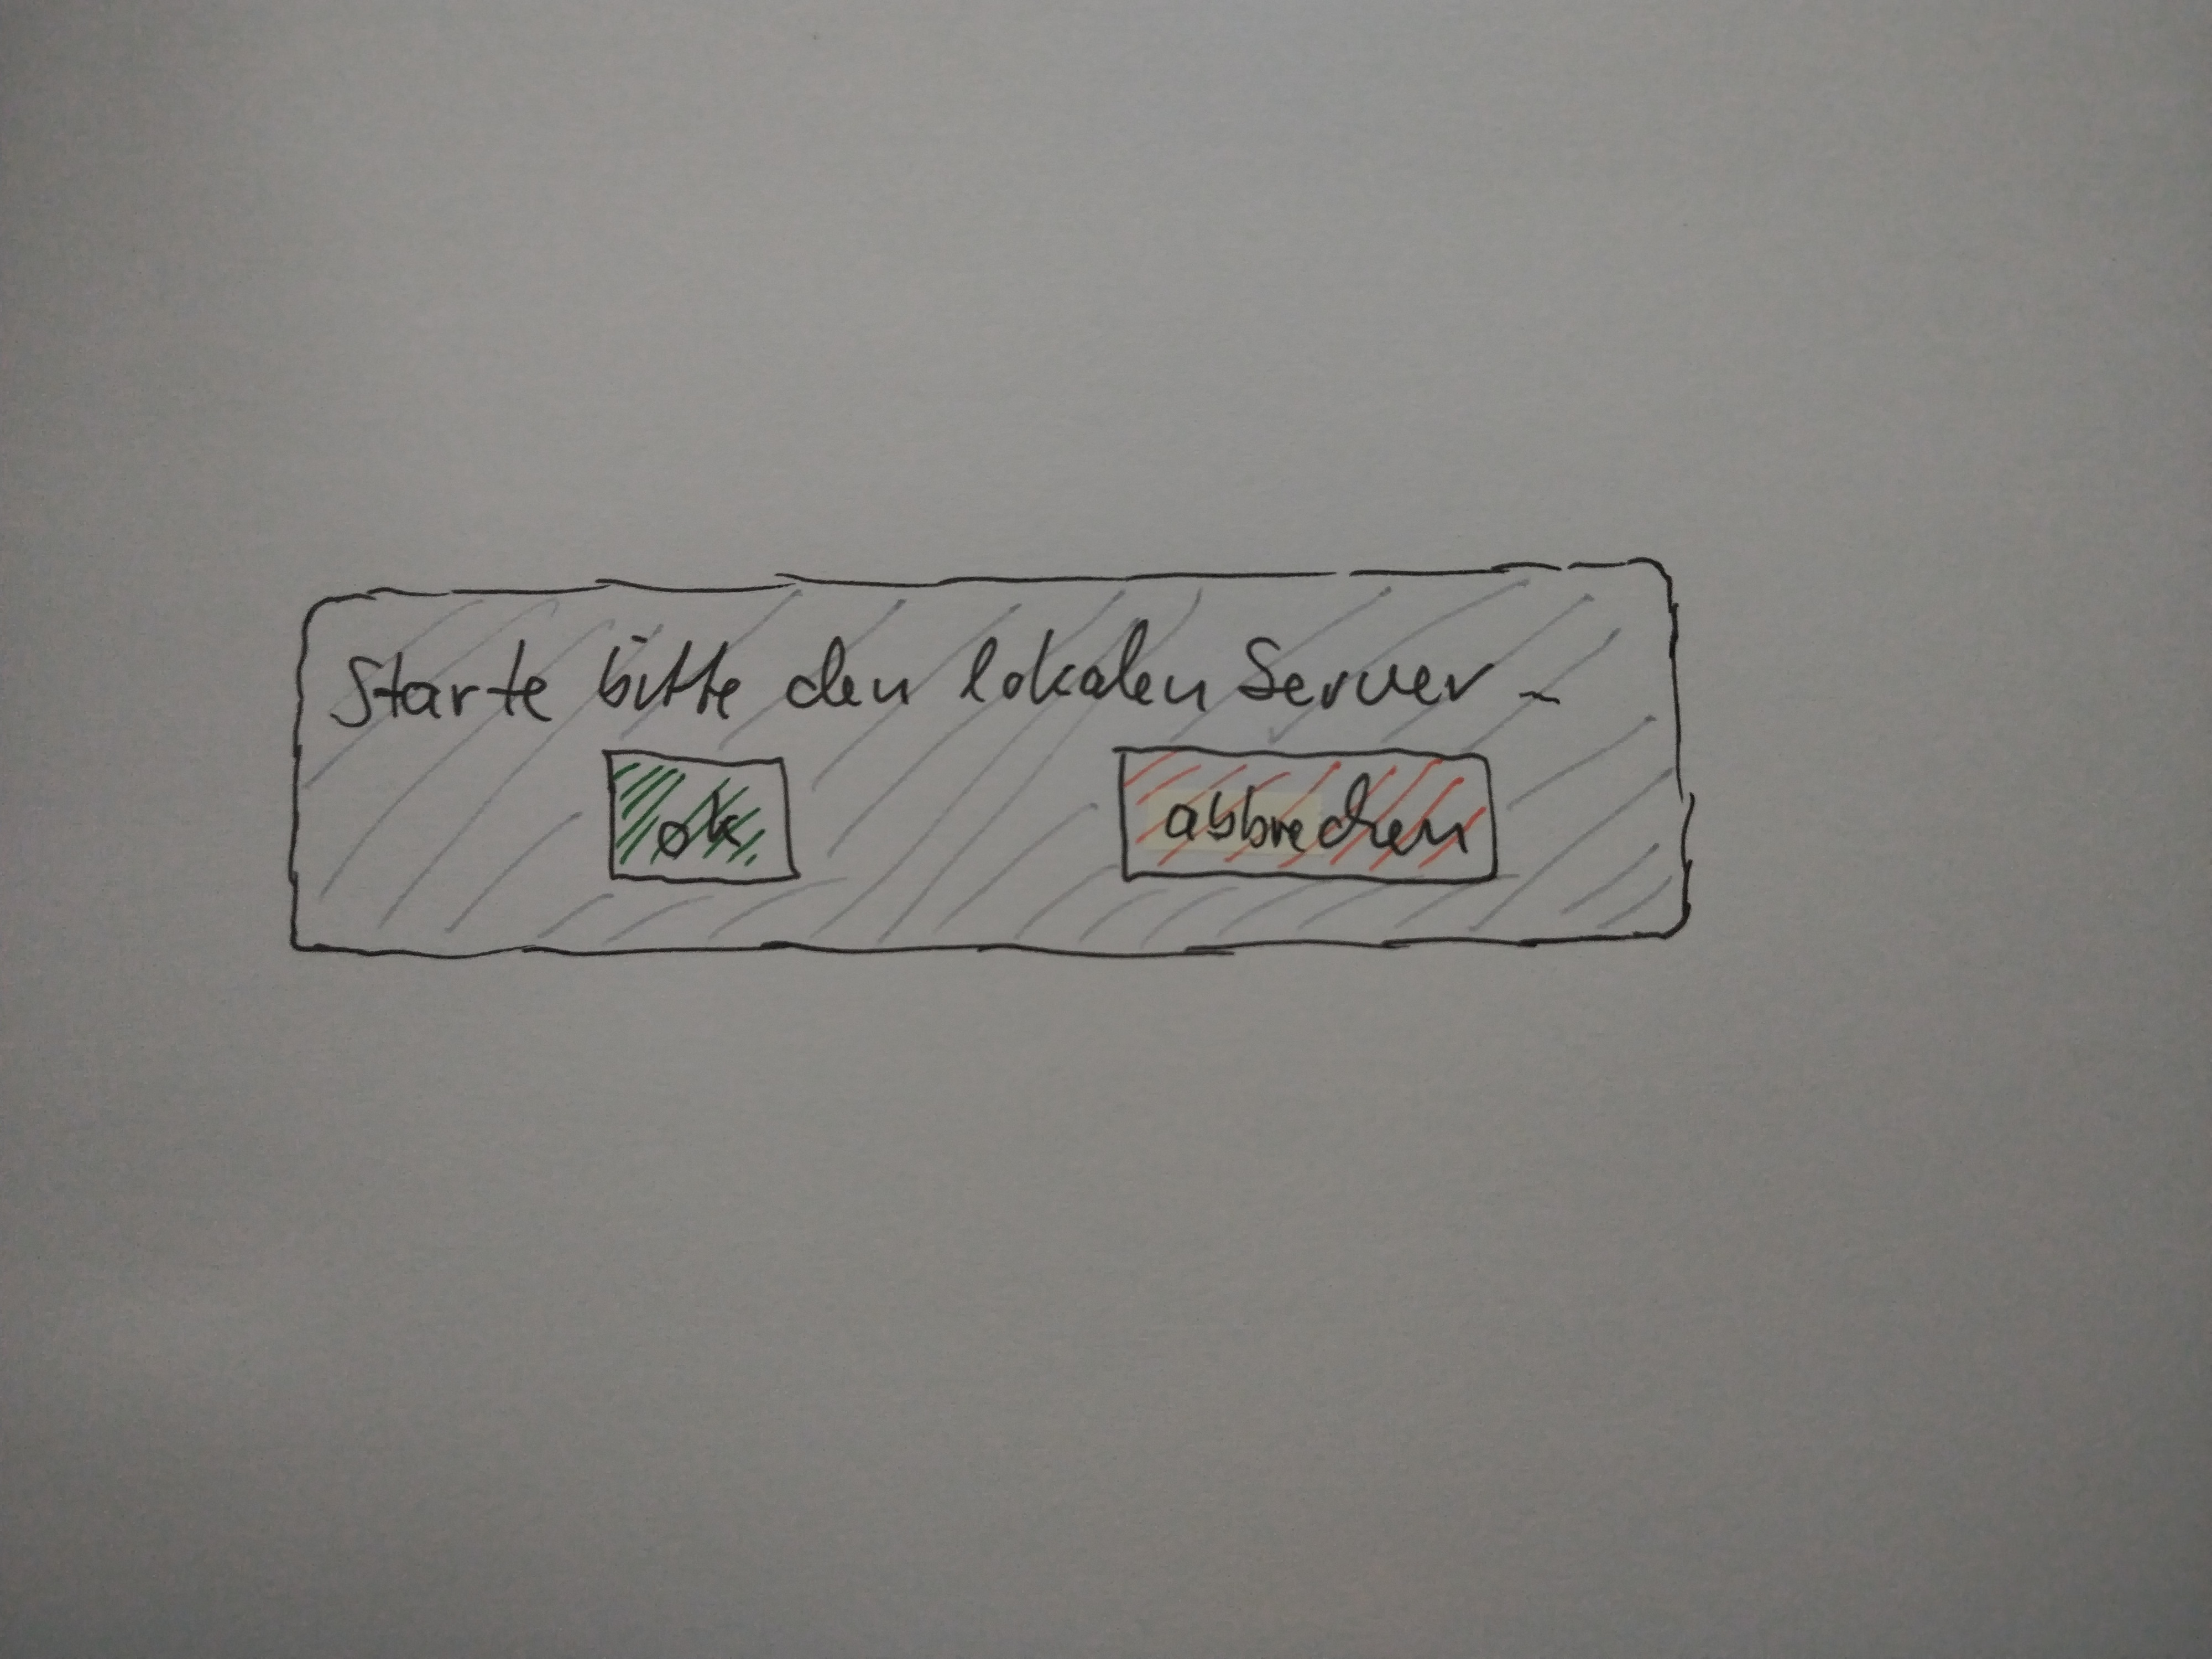 Starte bitte den lokalen Server -
ok abbrechen